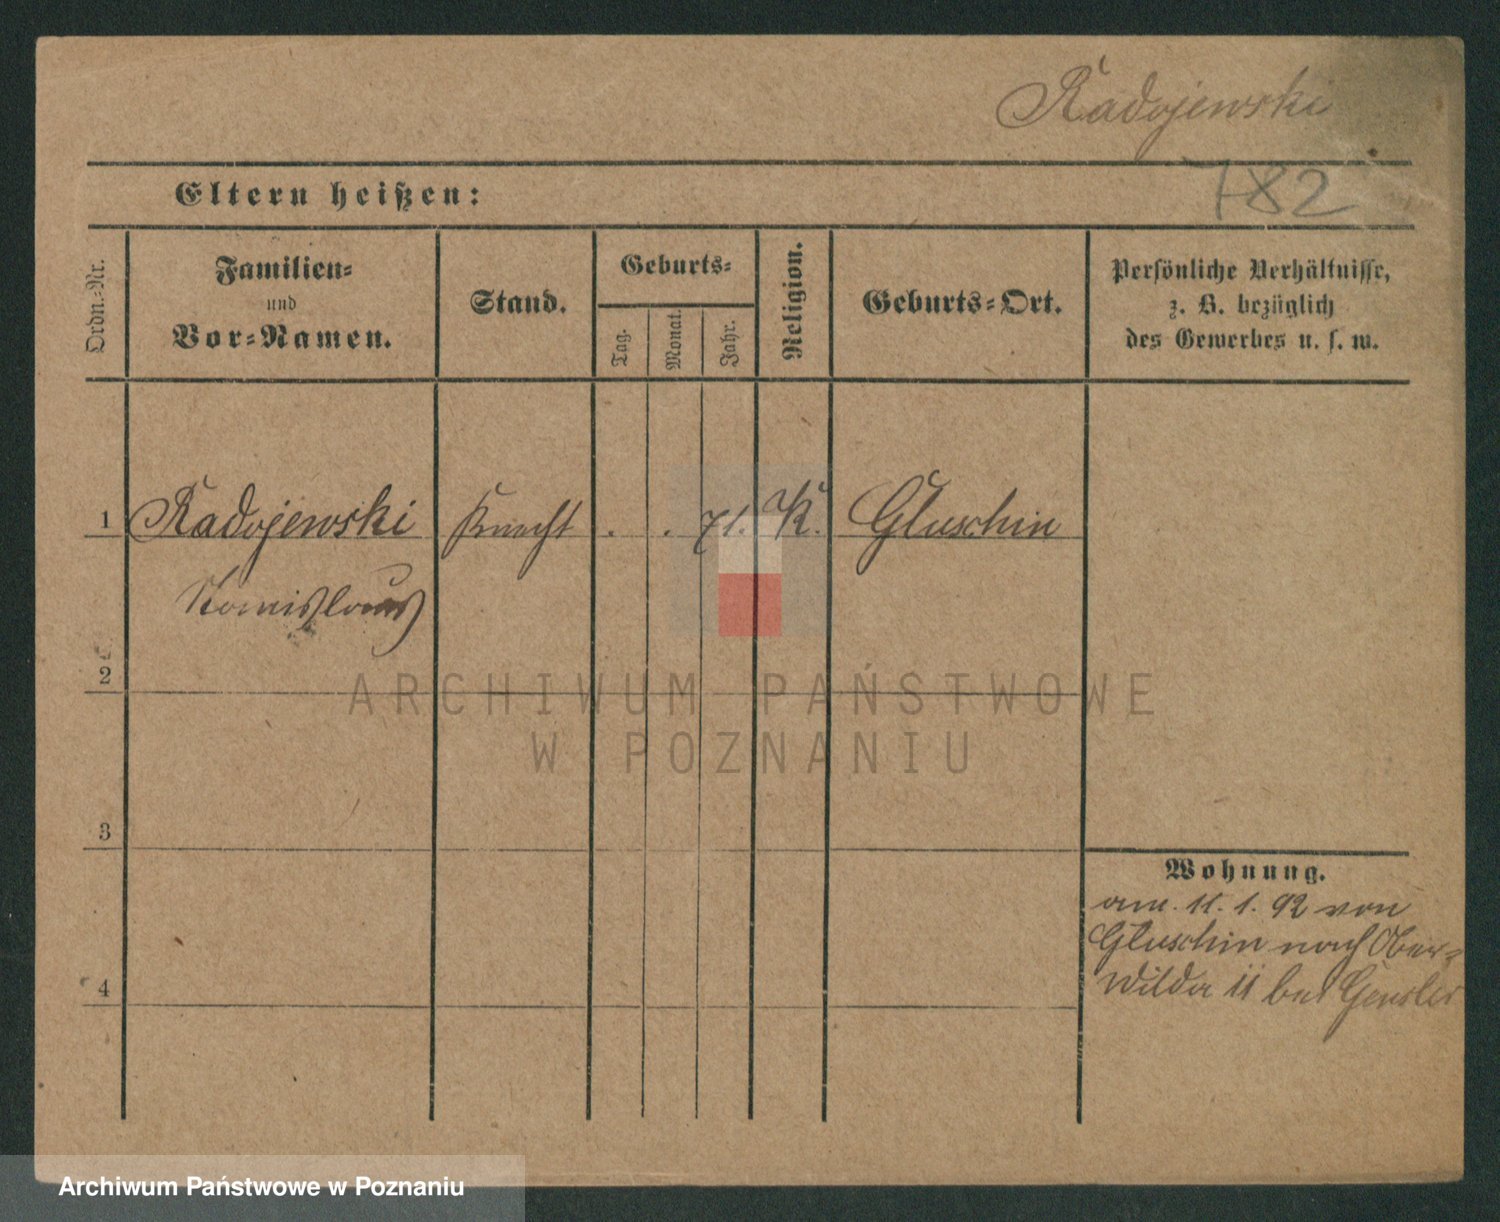 Radojewski
782
Eltern heißen:
Ordn.-Nr.
Familien-
und
Vor-Namen.
Stand.
Geburts-
Tag.
Monat.
Jahr.
Religion.
Geburts-Ort.
Persönliche Verhältnisse,
z. B. bezüglich
des Gewerbes u. s. w.
1 Radojewski Knecht . . 71. K. Gluschin
2
3
4
Wohnung.
am. 11. 1. 92 von
Gluschin nach Ober-
Wilda 11 bei
ARCHIWUM PAŃSTWOWE
W POZNANIU
Archiwum Państwowe w Poznaniu